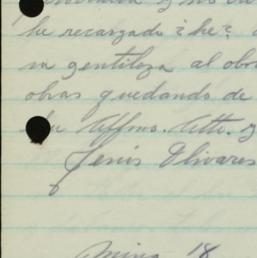 he recargado ? he ? a
su gentileza al obs
obras quedando de
Su Affmo. Atto. y
Jesús Olivares
18